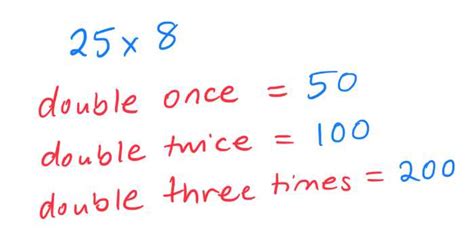 25 x 8
double once = 50
double twice = 100
double three times = 200